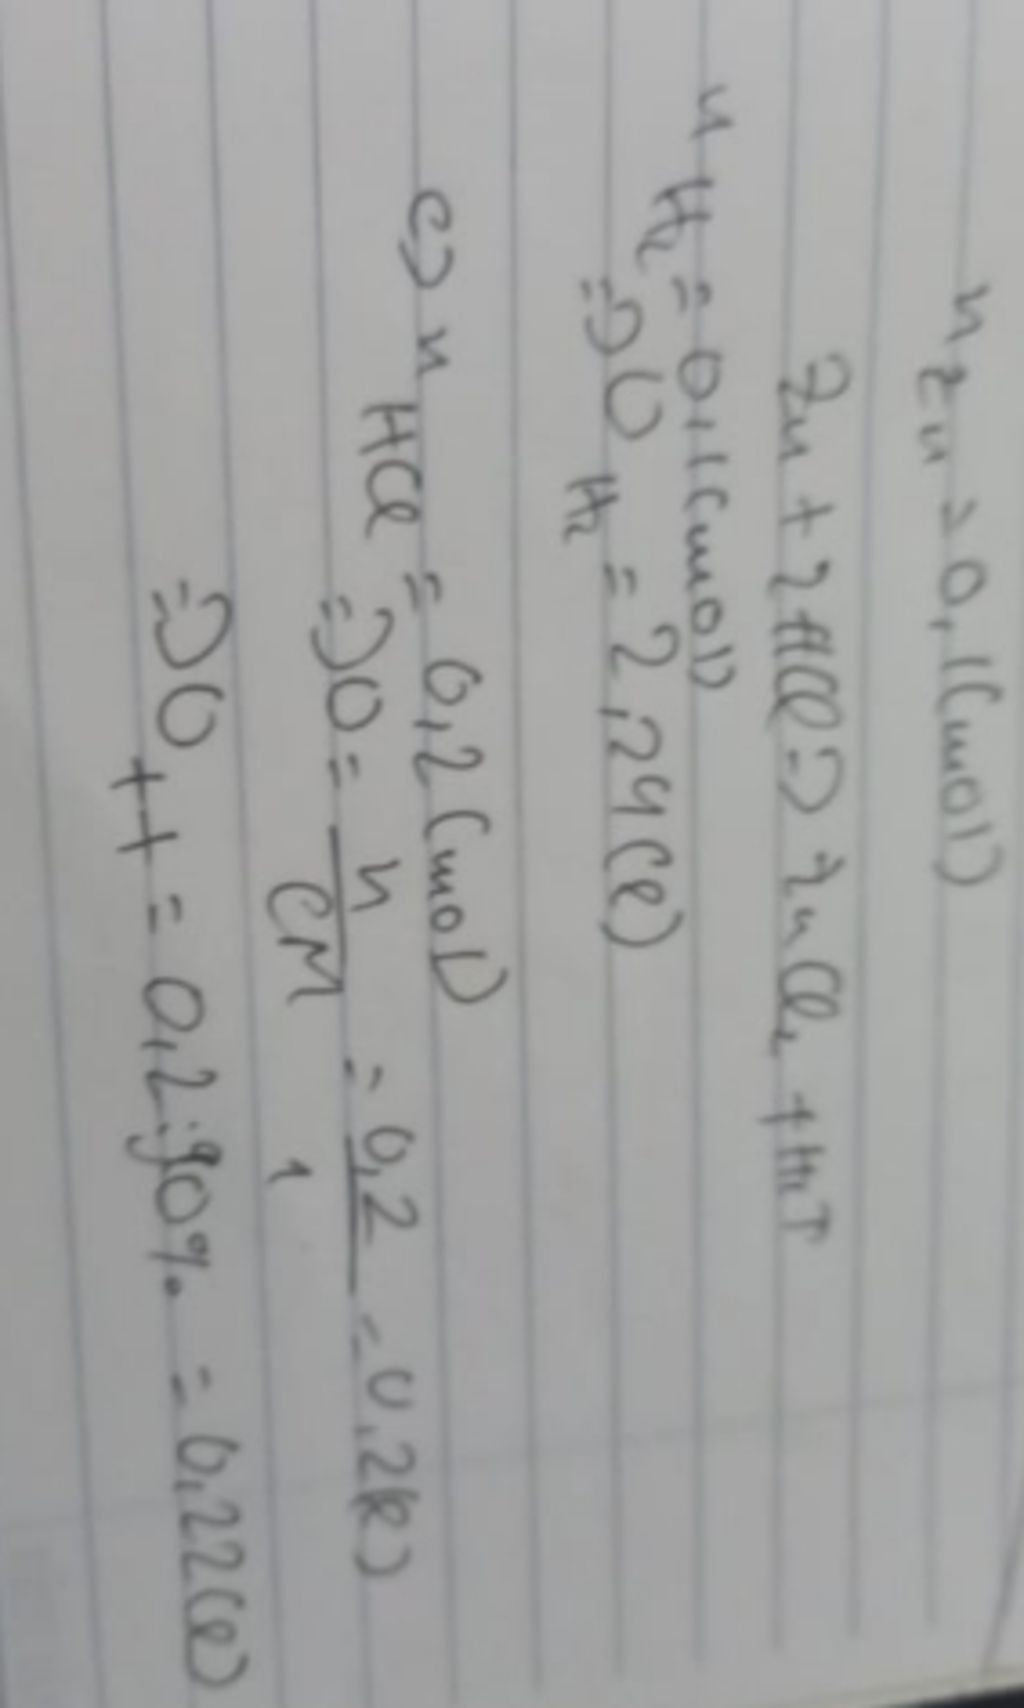 n Zn = 0,1(mol)
Zn + 2HCl => ZnCl₂ + H₂↑
n H₂ = 0,1(mol)
=> V H₂ = 2,24(l)
c) n HCl = 0,2(mol)
=> V = n/CM = 0,2/1 = 0,2(l)
=> V tt = 0,2:90% = 0,22(l)